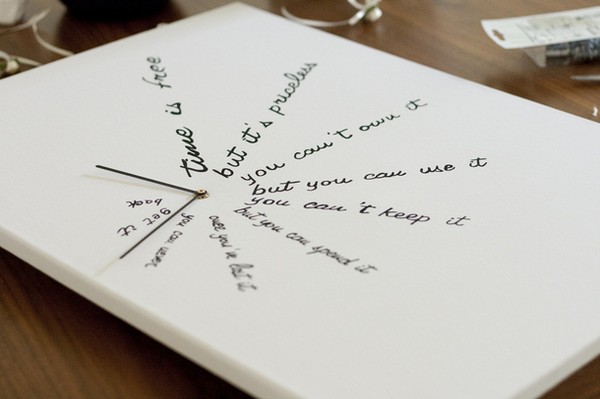 time is free
but it's priceless
you can't own it
but you can use it
you can't keep it
but you can spend it
once you've lost it
you can never
get it
back